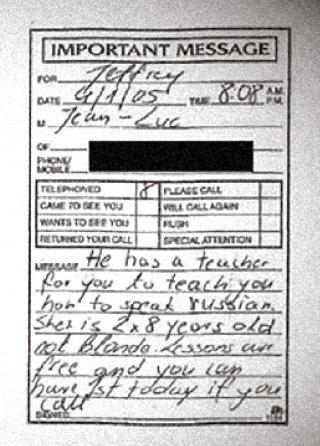 IMPORTANT MESSAGE
FOR Jeffrey
DATE 4/1/05 TIME 8:08 A.M. P.M.
M Jean-Luc
OF
PHONE/
MOBILE
TELEPHONED 8 PLEASE CALL
CAME TO SEE YOU WILL CALL AGAIN
WANTS TO SEE YOU RUSH
RETURNED YOUR CALL SPECIAL ATTENTION
MESSAGE He has a teacher
for you to teach you
how to speak russian.
She is 2x8 years old
not Blonde. Lessons are
free and you can
have 1st today if you
call
SIGNED